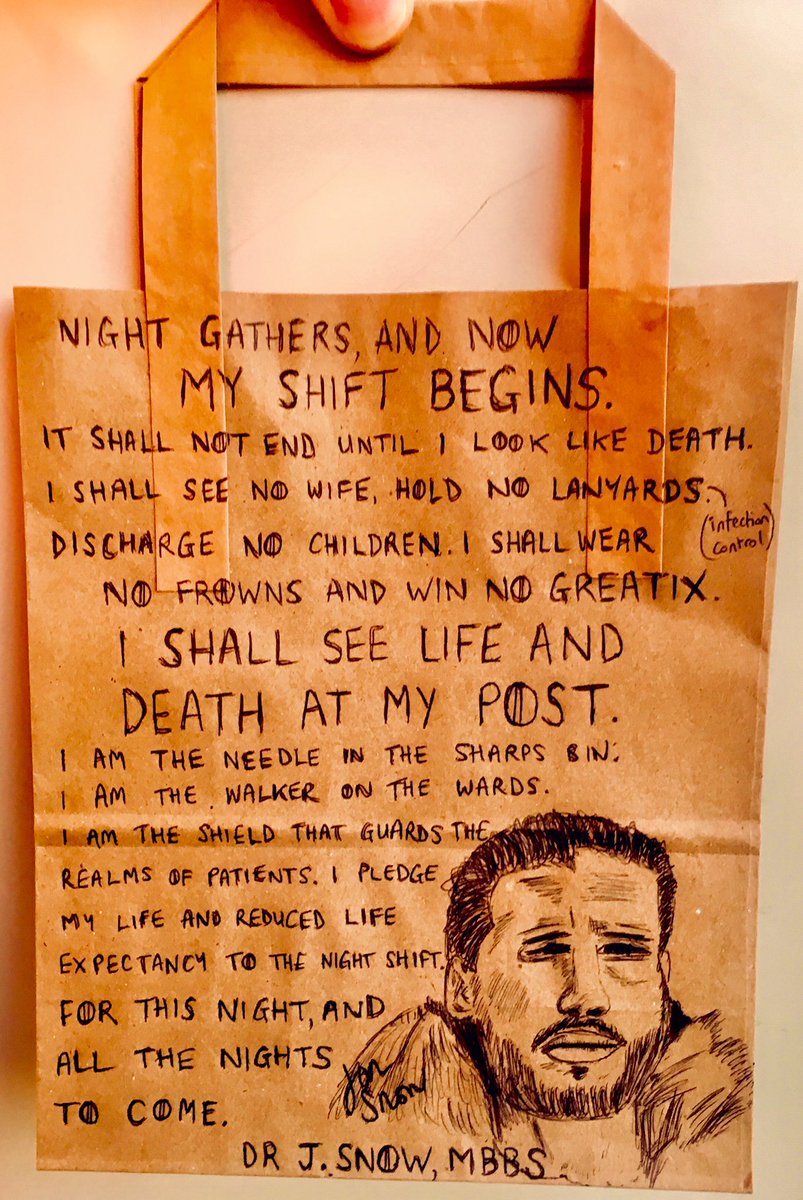 NIGHT GATHERS, AND NOW
MY SHIFT BEGINS.
IT SHALL NOT END UNTIL I LOOK LIKE DEATH.
I SHALL SEE NO WIFE, HOLD NO LANYARDS.
(infection control)
DISCHARGE NO CHILDREN. I SHALL WEAR
NO FROWNS AND WIN NO GREATIX.
I SHALL SEE LIFE AND
DEATH AT MY POST.
I AM THE NEEDLE IN THE SHARPS BIN.
I AM THE WALKER ON THE WARDS.
I AM THE SHIELD THAT GUARDS THE
REALMS OF PATIENTS. I PLEDGE
MY LIFE AND REDUCED LIFE
EXPECTANCY TO THE NIGHT SHIFT.
FOR THIS NIGHT, AND
ALL THE NIGHTS
TO COME.
Jon Snow
DR J. SNOW, MBBS